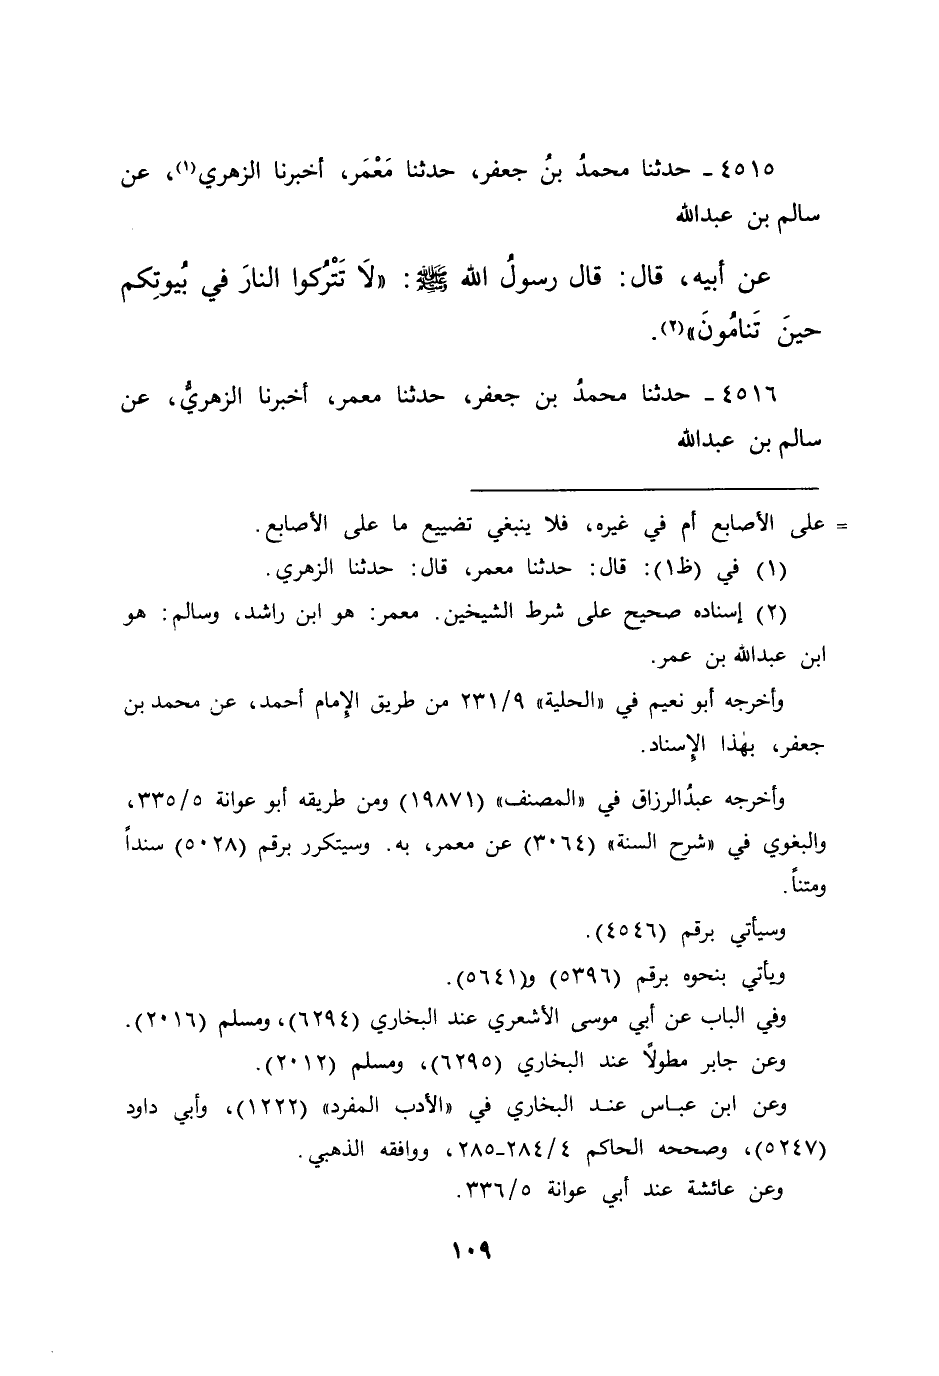 ٤٥١٥ ـ حدثنا محمدُ بنُ جعفر، حدثنا مَعْمَر، أخبرنا الزهري(١)، عن
سالم بن عبدالله
عن أبيه، قال: قال رسولُ الله ﷺ: «لَا تَتْرُكوا النارَ في بُيوتِكم
حينَ تَنامُونَ»(٢).
٤٥١٦ ـ حدثنا محمدُ بن جعفر، حدثنا معمر، أخبرنا الزهريُّ، عن
سالم بن عبدالله
= على الأصابع أم في غيره، فلا ينبغي تضييع ما على الأصابع.
(١) في (ظ١): قال: حدثنا معمر، قال: حدثنا الزهري.
(٢) إسناده صحيح على شرط الشيخين. معمر: هو ابن راشد، وسالم: هو
ابن عبدالله بن عمر.
وأخرجه أبو نعيم في «الحلية» ٢٣١/٩ من طريق الإمام أحمد، عن محمد بن
جعفر، بهٰذا الإسناد.
وأخرجه عبدُالرزاق في «المصنف» (١٩٨٧١) ومن طريقه أبو عوانة ٣٣٥/٥،
والبغوي في «شرح السنة» (٣٠٦٤) عن معمر، به. وسيتكرر برقم (٥٠٢٨) سنداً
ومتناً.
وسيأتي برقم (٤٥٤٦).
ويأتي بنحوه برقم (٥٣٩٦) و(٥٦٤١).
وفي الباب عن أبي موسى الأشعري عند البخاري (٦٢٩٤)، ومسلم (٢٠١٦).
وعن جابر مطولًا عند البخاري (٦٢٩٥)، ومسلم (٢٠١٢).
وعن ابن عباس عند البخاري في «الأدب المفرد» (١٢٢٢)، وأبي داود
(٥٢٤٧)، وصححه الحاكم ٢٨٤/٤-٢٨٥، ووافقه الذهبي.
وعن عائشة عند أبي عوانة ٣٣٦/٥.
١٠٩